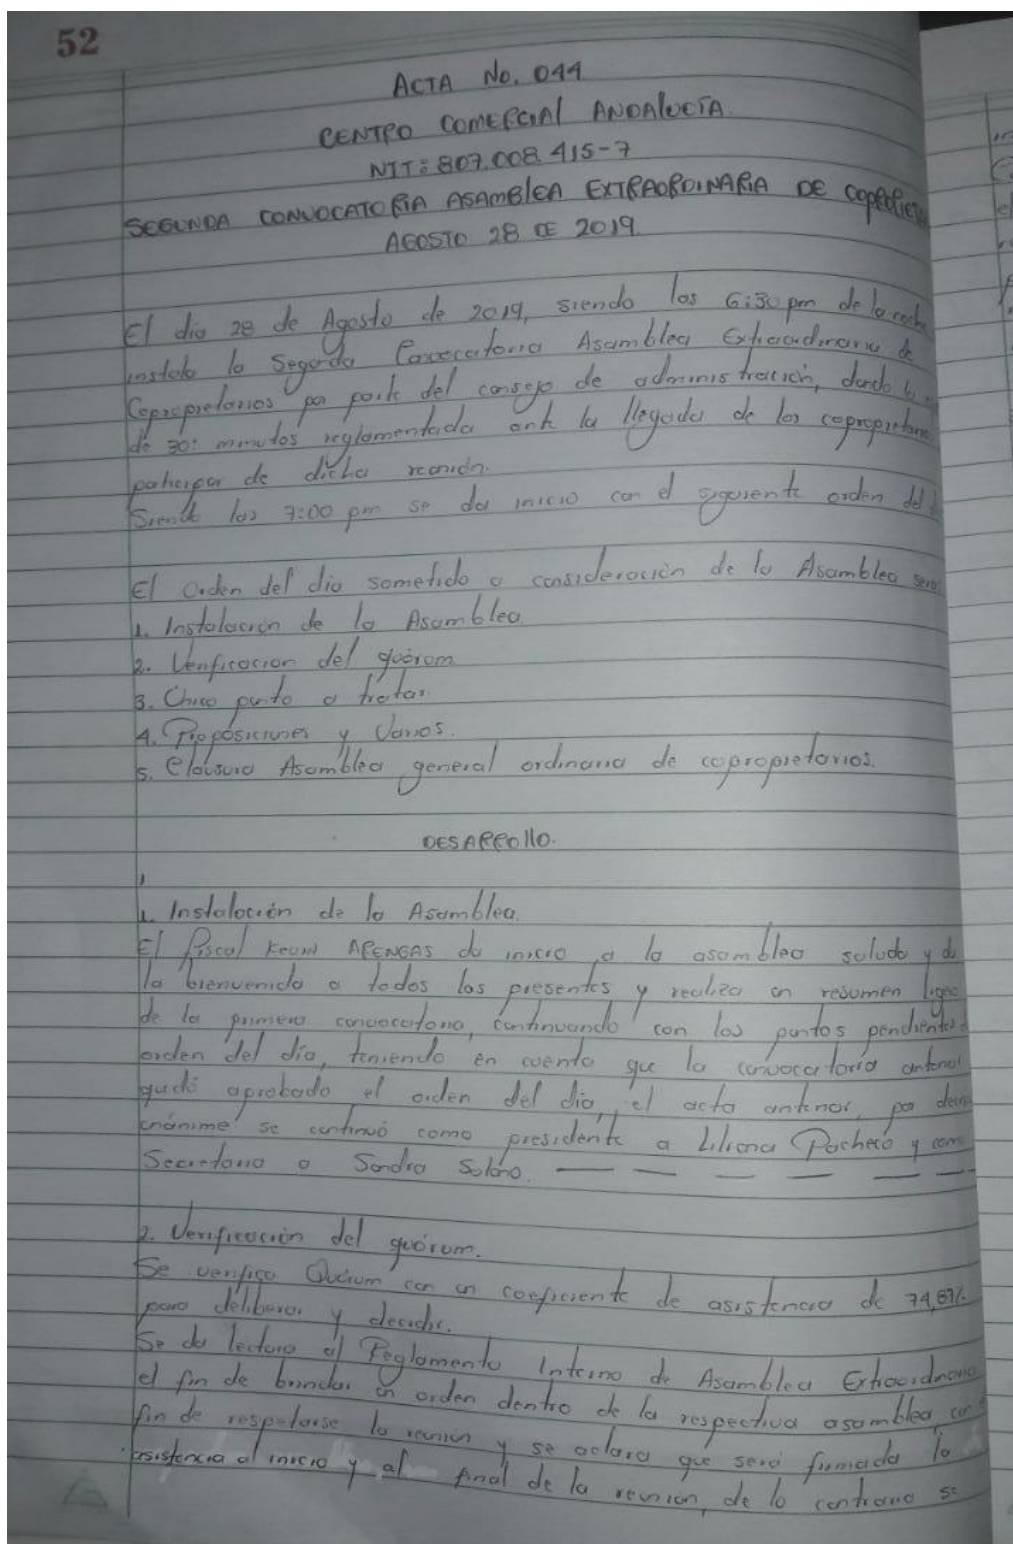 52
ACTA No. 044
CENTRO COMERCIAL ANDALUCIA.
NIT: 807.008.415-7
SEGUNDA CONVOCATORIA ASAMBLEA EXTRAORDINARIA DE
AGOSTO 28 DE 2019
El dia 28 de Agosto de 2019, siendo las 6:30 pm de la noche
instala la Segunda Convocatoria Asamblea Extraordinaria de
Copropietarios por parte del consejo de administración, dando
de 30: minutos reglamentada ante la llegada de los
participar de dicha reunión.
Siendo las 7:00 pm se da inicio con el siguiente orden del
El Orden del dia sometido a consideración de la Asamblea
1. Instalación de la Asamblea
2. Verificacion del quórum
3. Único punto a tratar.
4. Proposiciones y Varios.
5. Clausura Asamblea general ordinaria de copropietarios.
DESARROllo.
1. Instalación de la Asamblea.
El Fiscal ARENGAS da inicio a la asamblea saluda y da
la bienvenida a todos los presentes y realiza un resumen
de la primera convocatoria, continuando con los puntos pendientes
orden del día, teniendo en cuenta que la convocatoria anterior
quedó aprobado el orden del dia, el acta anterior, por
unánime se continuó como presidente a Liliana Pacheco y com
Secretaria a Sandra Solano. — — — — — —
2. Verificación del quórum.
Se verifico Quórum con un coeficiente de asistencia de 74,87%
para deliberar y decidir.
Se da lectura al Reglamento Interno de Asamblea Extraordinaria
el fin de brindar un orden dentro de la respectiva asamblea, con
fin de respetarse la reunión y se aclara que será firmada la
asistencia al inicio y al final de la reunión, de lo contrario se